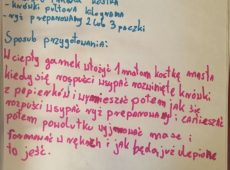 kostka
- krówki półtora kilograma
- ryż preparowany 2 lub 3 paczki
Sposób przygotowania:
W ciepły garnek włożyć 1 małom kostkę masła
kiedy się rozpuści wsypać rozwinięte krówki
z papierków i wymieszać potem jak się
rozpuści wsypać ryż preparowany i
potem powolutku wyjmować mase i
formować w rękach i jak będą już ulepione
to jeść.